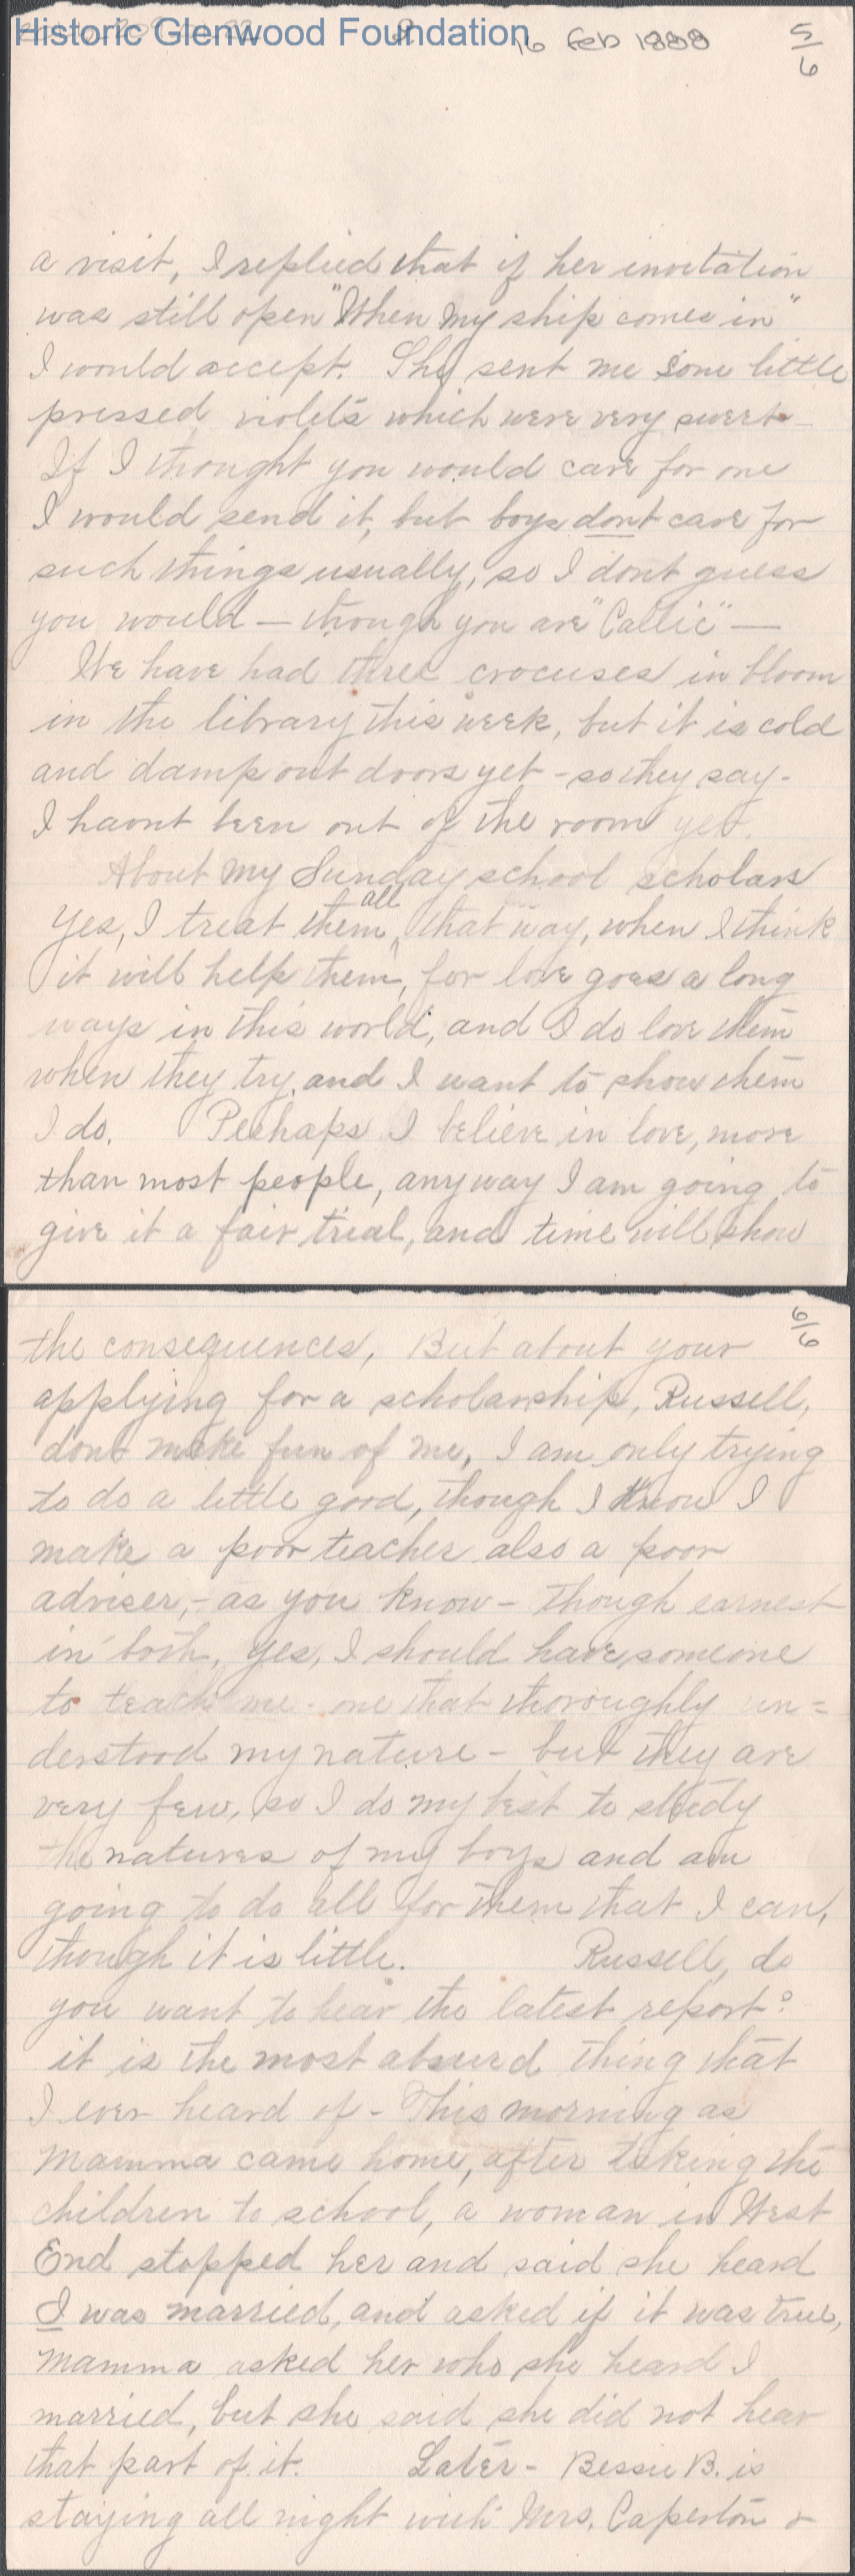 Historic Glenwood Foundation
16 Feb 1888
5/6
a visit, I replied that if her invitation
was still open "When my ship comes in"
I would accept. She sent me some little
pressed violets which were very sweet -
If I thought you would care for one
I would send it, but boys dont care for
such things usually, so I dont guess
you would — though you are "Callie" —
We have had three crocuses in bloom
in the library this week, but it is cold
and damp out doors yet - so they say -
I havnt been out of the room yet.
About my Sunday school scholars
Yes, I treat them all that way, when I think
it will help them, for love goes a long
ways in this world, and I do love them
when they try, and I want to show them
I do. Perhaps I believe in love, more
than most people, anyway I am going to
give it a fair trial, and time will show
6/6
the consequences, But about your
applying for a scholarship, Russell,
dont make fun of me, I am only trying
to do a little good, though I know I
make a poor teacher also a poor
adviser, - as you know - though earnest
in both, yes, I should have someone
to teach me - one that thoroughly un=
derstood my nature - but they are
very few, so I do my best to study
the natures of my boys and am
going to do all for them that I can,
though it is little. Russell, do
you want to hear the latest report?
it is the most absurd thing that
I ever heard of - This morning as
Mamma came home, after taking the
children to school, a woman in West
End stopped her and said she heard
I was married, and asked if it was true,
Mamma asked her who she heard I
married, but she said she did not hear
that part of it. Later - Bessie B. is
staying all night with Mrs. Caperton &